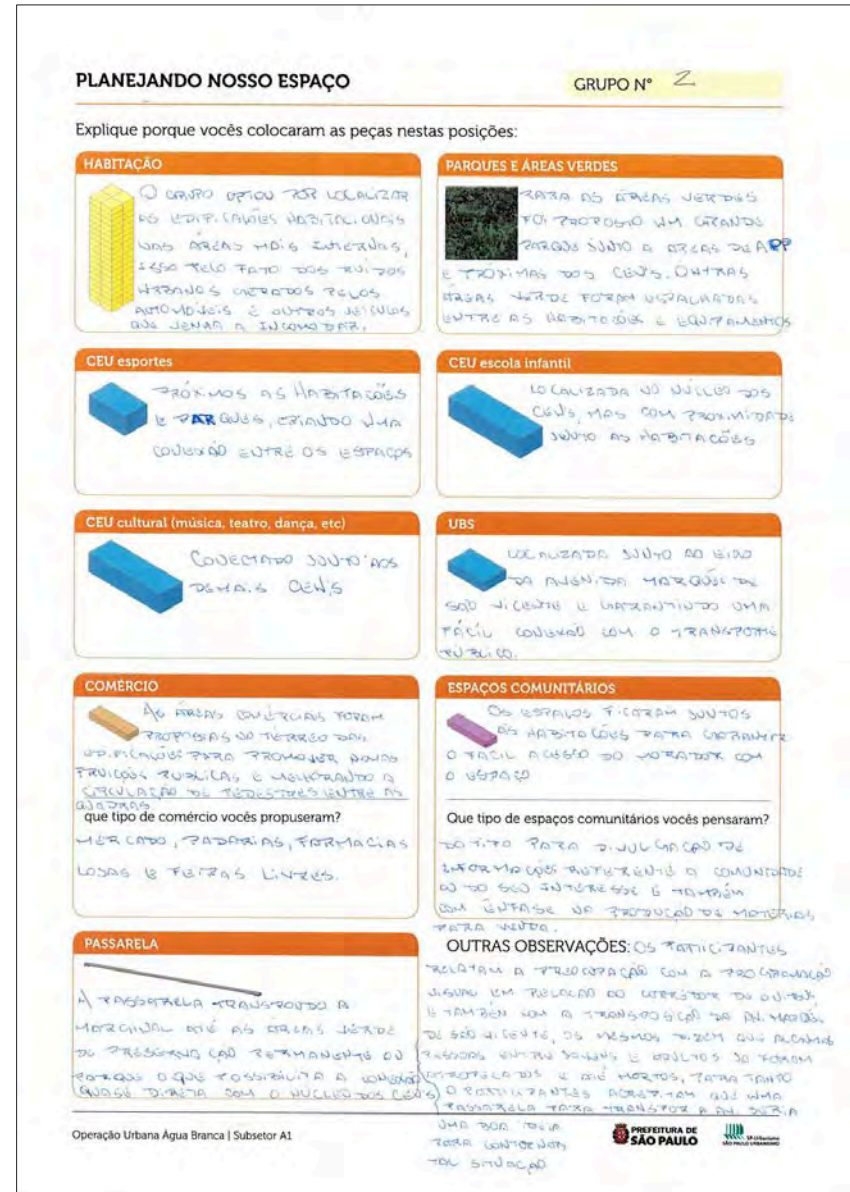 PLANEJANDO NOSSO ESPAÇO
GRUPO N° 2
Explique porque vocês colocaram as peças nestas posições:
HABITAÇÃO
O GRUPO OPTOU POR LOCALIZAR
AS EDIFICAÇÕES HABITACIONAIS
NAS ÁREAS MAIS INTERNAS,
ISSO PELO FATO DOS RUÍDOS
URBANOS GERADOS PELOS
AUTOMÓVEIS E OUTROS VEÍCULOS
QUE VENHAM A INCOMODAR.
PARQUES E ÁREAS VERDES
PARA AS ÁREAS VERDES
FOI PROPOSTO UM GRANDE
PARQUE JUNTO A ÁREAS DE APP
E PRÓXIMAS DOS CEU'S. OUTRAS
ÁREAS VERDE FORAM ESPALHADAS
ENTRE AS HABITAÇÕES E EQUIPAMENTOS
CEU esportes
PRÓXIMOS AS HABITAÇÕES
E PARQUES, CRIANDO UMA
CONEXÃO ENTRE OS ESPAÇOS
CEU escola infantil
LOCALIZADA NO NÚCLEO DOS
CEU'S, MAS COM PROXIMIDADE
JUNTO AS HABITAÇÕES
CEU cultural (música, teatro, dança, etc)
CONECTADO JUNTO AOS
DEMAIS CEU'S
UBS
LOCALIZADA JUNTO AO EIXO
DA AVENIDA MARQUÊS DE
SÃO VICENTE E GARANTINDO UMA
FÁCIL CONEXÃO COM O TRANSPORTE
PÚBLICO.
COMÉRCIO
AS ÁREAS COMERCIAIS FORAM
PROPOSTAS NO TÉRREO DAS
EDIFICAÇÕES PARA PROMOVER
FRUIÇÕES PUBLICAS E MELHORANDO A
CIRCULAÇÃO DE PEDESTRES ENTRE AS
QUADRAS
que tipo de comércio vocês propuseram?
MERCADO, PADARIAS, FARMACIAS
LOJAS E FEIRAS LIVRES.
ESPAÇOS COMUNITÁRIOS
OS ESPAÇOS FICARAM JUNTOS
ÀS HABITAÇÕES PARA GARANTIR
O FACIL ACESSO DO MORADOR COM
O ESPAÇO
Que tipo de espaços comunitários vocês pensaram?
DO TIPO PARA DIVULGAÇÃO DE
INFORMAÇÕES REFERENTE A COMUNIDADE
OU DO SEU INTERESSE E TAMBÉM
COM ÊNFASE NA PRODUÇÃO DE MATERIAS
PARA VENDA.
PASSARELA
A PASSARELA TRANSPONDO A
MARGINAL ATÉ AS ÁREAS VERDE
DE PRESERVAÇÃO PERMANENTE OU
PARQUE O QUE POSSIBILITA A CONEXÃO
QUASE DIRETA COM O NUCLEO DOS CEU'S
OUTRAS OBSERVAÇÕES: OS PARTICIPANTES
RELATAM A PREOCUPAÇÃO COM A PROGRAMAÇÃO
VISUAL EM RELAÇÃO AO CORREDOR DE ONIBUS,
E TAMBÉM COM A TRANSPOSIÇÃO DA AV. MARQUÊS
DE SÃO VICENTE, OS MESMOS DIZEM QUE ALGUMAS
PESSOAS ENTRE JOVENS E ADULTOS JÁ FORAM
ATROPELADOS E ATÉ MORTOS, PARA TANTO
O PARTICIPANTES ACREDITAM QUE UMA
PASSARELA PARA TRANSPOR A AV. SERIA
UMA BOA IDEIA
PARA CONTORNAR
TAL SITUAÇÃO
Operação Urbana Água Branca | Subsetor A1
PREFEITURA DE
SÃO PAULO
SP-Urbanismo
SÃO PAULO URBANISMO